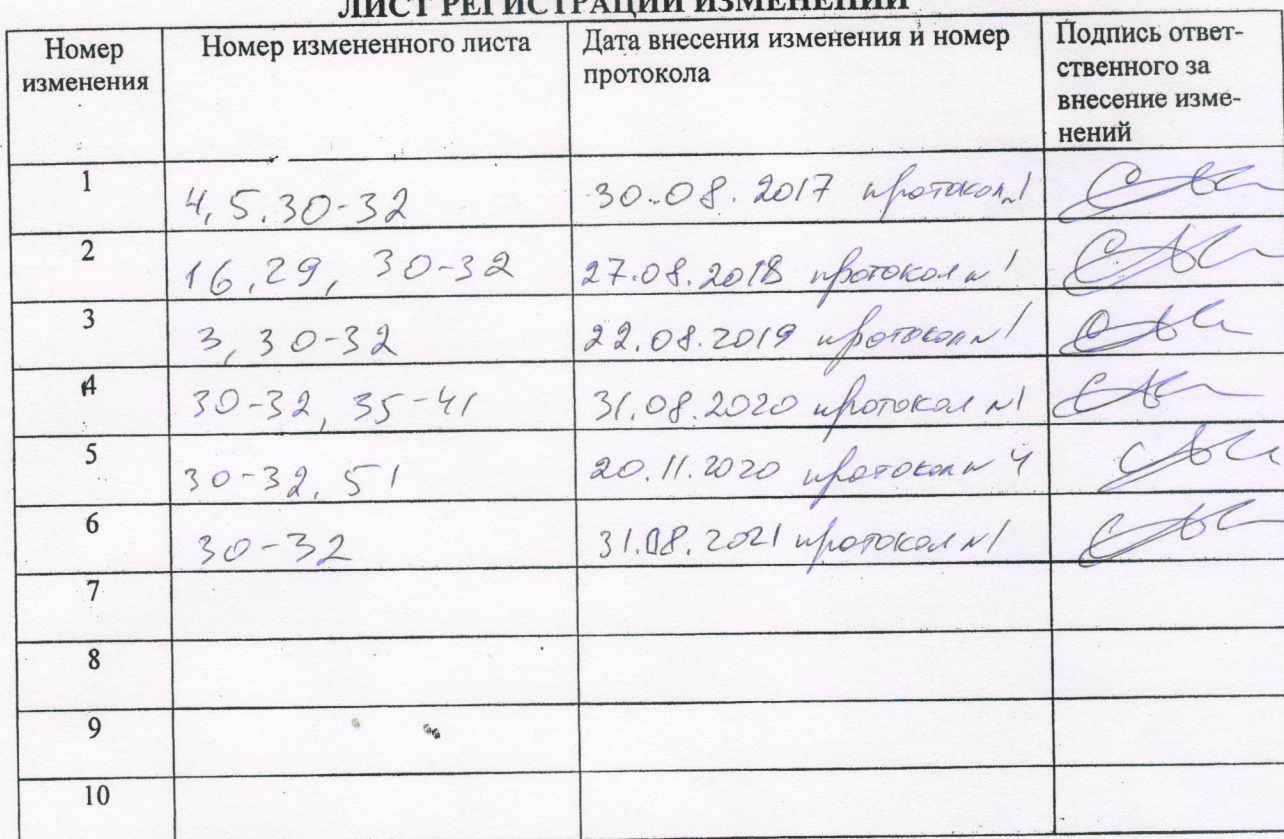 ЛИСТ РЕГИСТРАЦИИ ИЗМЕНЕНИЙ
Номер изменения Номер измененного листа Дата внесения изменения и номер протокола Подпись ответ-ственного за внесение изме-нений
1 4, 5. 30-32 30.08.2017 протокол 1
2 16, 29, 30-32 27.08.2018 протокол N 1
3 3, 30-32 22.08.2019 протокол N 1
4 30-32, 35-41 31.08.2020 протокол N 1
5 30-32, 51 20.11.2020 протокол N 4
6 30-32 31.08.2021 протокол N 1
7
8
9
10